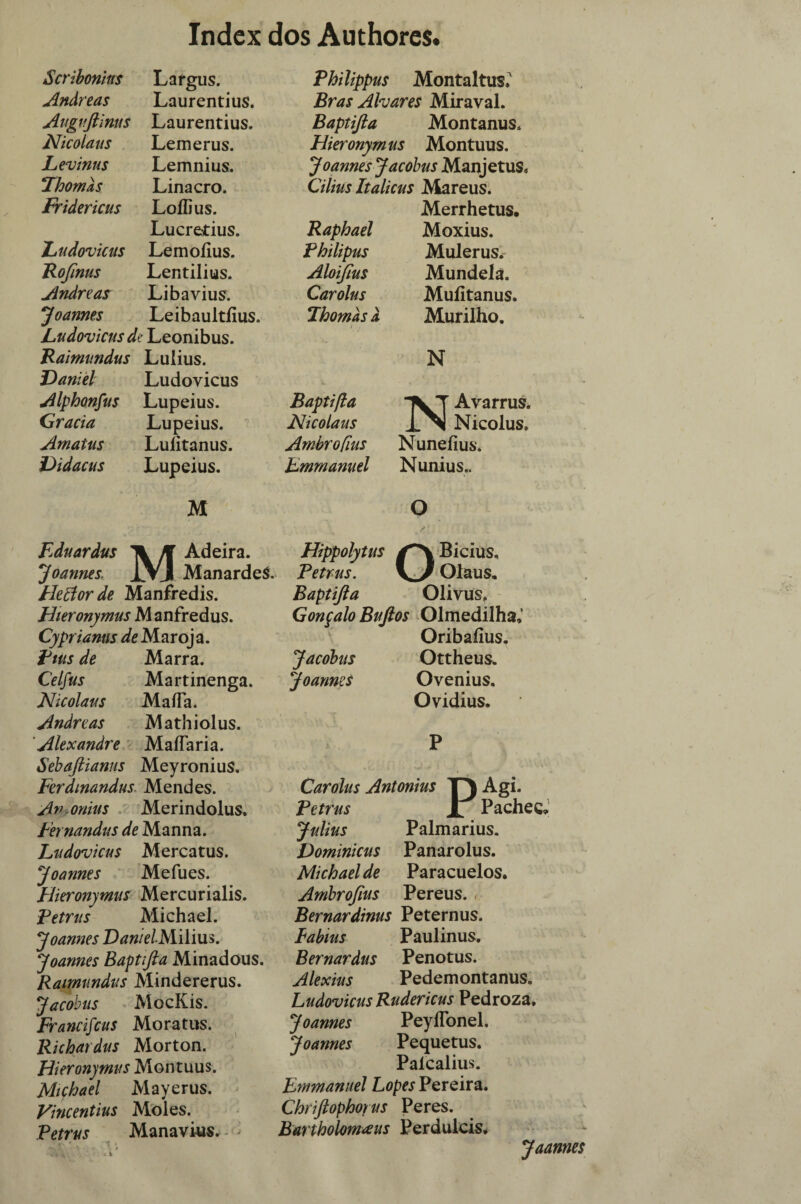 Index dos Authores.
Scribonius Largus.
Andreas Laurentius.
Auguſtinus Laurentius.
Nicolaus Lemerus.
Levinus Lemnius.
Thomàs Linacro.
Fridericus Loſſius.
Lucretius.
Ludovicus Lemoſius.
Roſinus Lentilius.
Andreas Libavius.
Joannes Leibaultſius.
Ludovicus de Leonibus.
Raimundus Lulius.
Daniel Ludovicus
Alphonſus Lupeius.
Gracia Lupeius.
Amatus Luſitanus.
Didacus Lupeius.
M
Eduardus MAdeira.
Joannes. Manardes.
Hector de Manfredis.
Hieronymus Manfredus.
Cyprianus de Maroja.
Pius de Marra.
Celſus Martinenga.
Nicolaus Maſſa.
Andreas Mathiolus.
Alexandre Maſſaria.
Sebaſtianus Meyronius.
Ferdinandus Mendes.
Antonius Merindolus.
Fernandus de Manna.
Ludovicus Mercatus.
Joannes Meſues.
Hieronymus Mercurialis.
Petrus Michael.
Joannes Daniel Milius.
Joannes Baptiſta Minadous.
Raimundus Mindererus.
Jacobus MocKis.
Franciſcus Moratus.
Richardus Morton.
Hieronymus Montuus.
Michael Mayerus.
Vincentius Moles.
Petrus Manavius.
Philippus Montaltus.
Bras Alvares Miraval.
Baptiſta Montanus.
Hieronymus Montuus.
Joannes Jacobus Manjetus.
Cilius Italicus Mareus.
Merrhetus.
Raphael Moxius.
Philipus Mulerus.
Aloiſius Mundela.
Carolus Muſitanus.
Thomàs à Murilho.
N
Baptiſta NAvarrus.
Nicolaus Nicolus.
Ambroſius Nuneſius.
Emmanuel Nunius..
O
Hippolytus OBicius.
Petrus. Olaus.
Baptiſta Olivus.
Gonçalo Buſtos Olmedilha.
Oribaſius.
Jacobus Ottheus.
Joannes Ovenius.
Ovidius.
P
Carolus Antonius PAgi.
Petrus Pachec.
Julius Palmarius.
Dominicus Panarolus.
Michael de Paracuelos.
Ambroſius Pereus.
Bernardinus Peternus.
Fabius Paulinus.
Bernardus Penotus.
Alexius Pedemontanus.
Ludovicus Rudericus Pedroza.
Joannes Peyſſonel.
Joannes Pequetus.
Paſcalius.
Emmanuel Lopes Pereira.
Chriſtophorus Peres.
Bartholomæus Perdulcis.
Jaannes